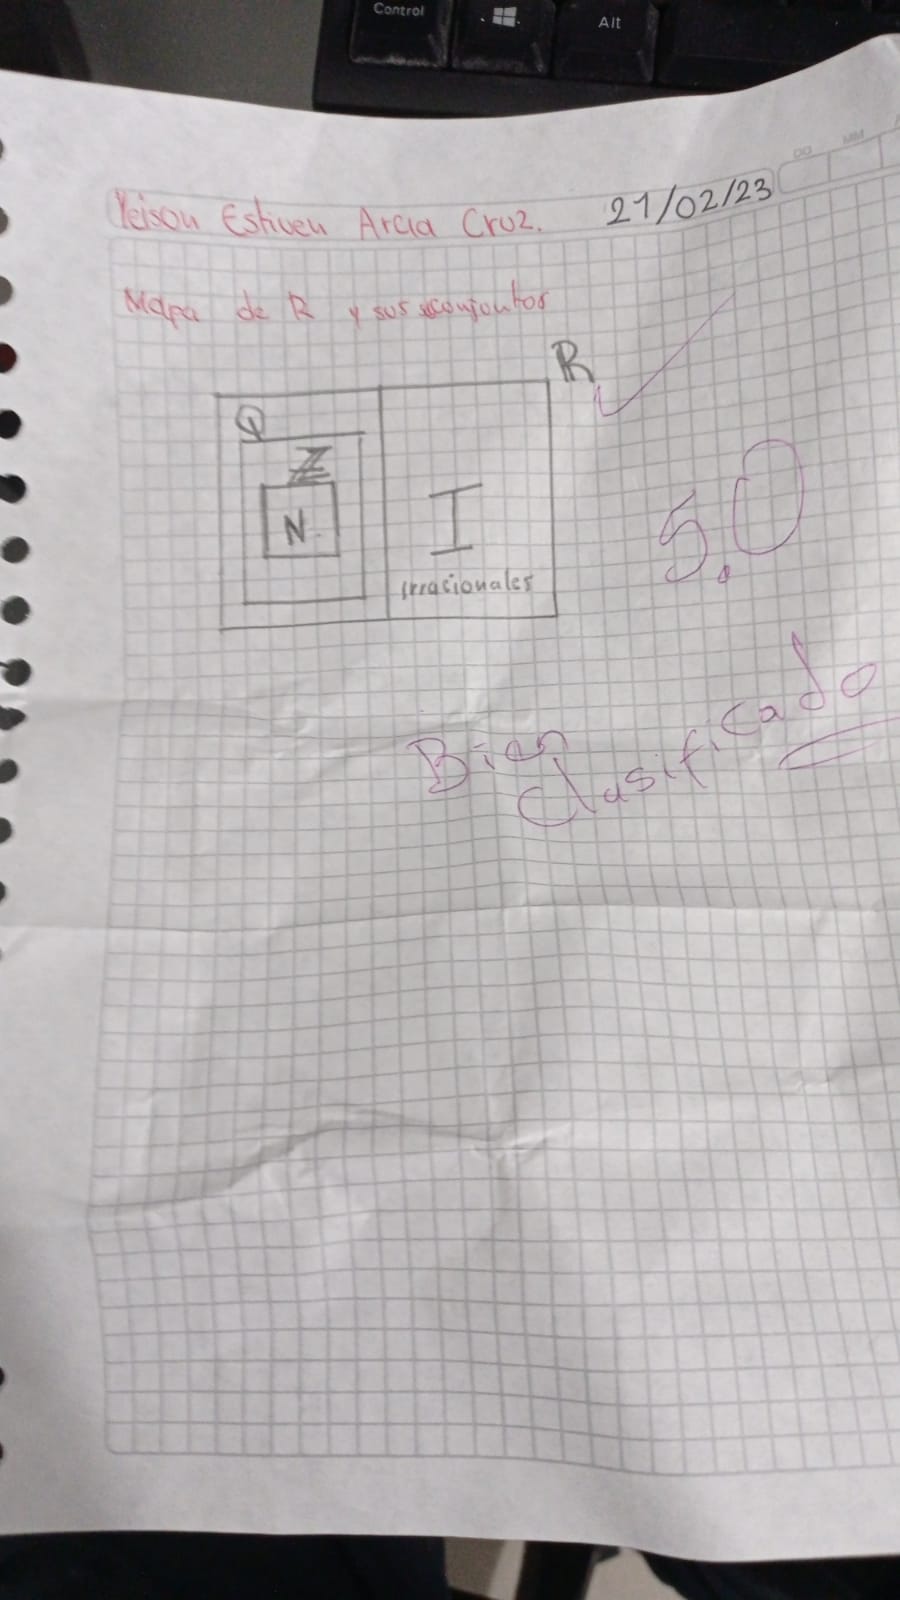 Control
Alt
DD
MM
Yeison Estiven Arcia Cruz. 21/02/23
Mapa de R y sus conjuntos
R
Q
Z
N.
I
irracionales
5.0
Bien
Clasificado